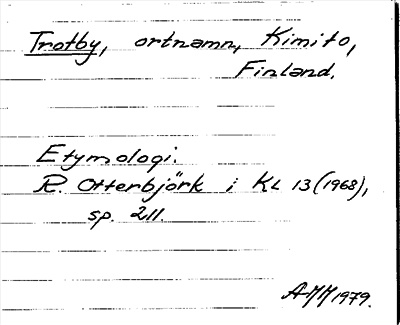 Trotby, ortnamn, Kimito,
Finland.
Etymologi.
R. Otterbjörk i KL 13 (1968),
sp. 211.
AMM 1979.